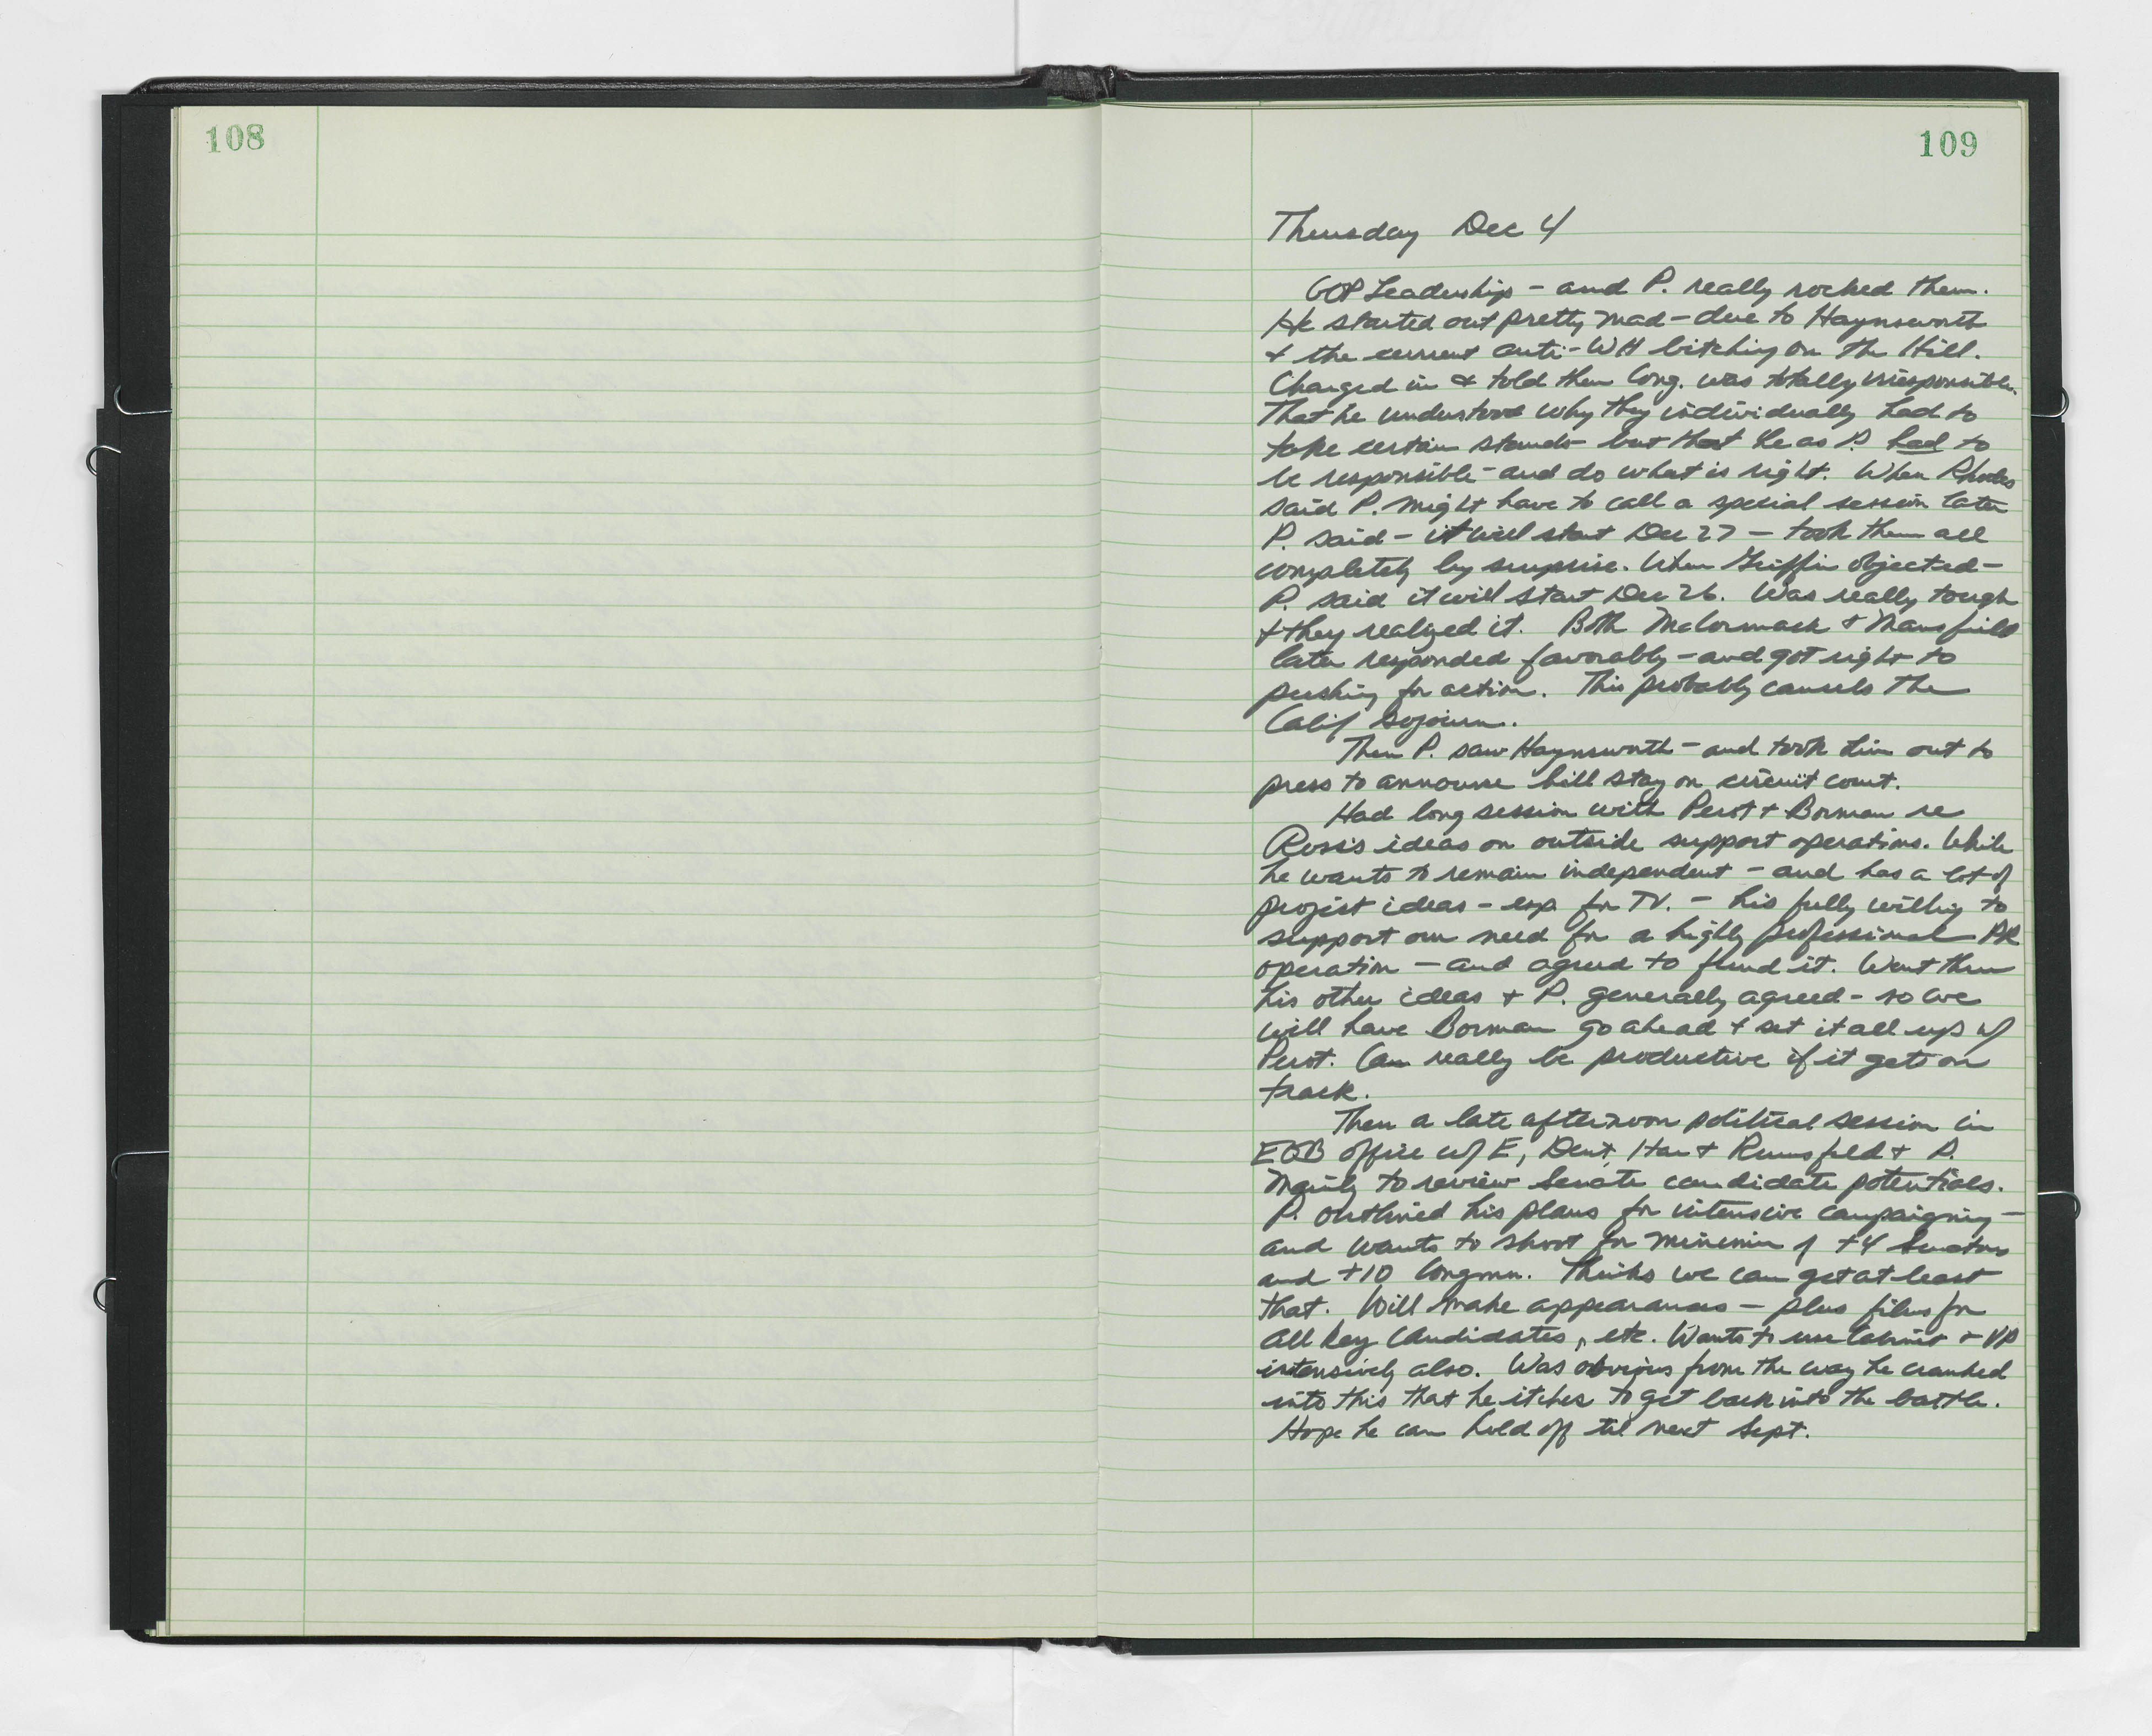 108
109
Thursday Dec 4
GOP Leadership - and P. really rocked them.
He started out pretty mad - due to Haynsworth
& the current anti-WH bitching on the Hill.
Charged in & told them Cong. was totally irresponsible.
That he understood why they individually had to
take certain stands - but that he as P. had to
be responsible - and do what is right. When Rhodes
said P. might have to call a special session later
P. said - it will start Dec 27 - took them all
completely by surprise. When Griffin objected -
P. said it will start Dec 26. Was really tough
& they realized it. Both McCormack & Mansfield
later responded favorably - and got right to
pushing for action. This probably cancels the
Calif sojourn.
Then P. saw Haynsworth - and took him out to
press to announce he'll stay on circuit court.
Had long session with Perot & Borman re
Ross's ideas on outside support operations. While
he wants to remain independent - and has a lot of
project ideas - esp for TV. - he's fully willing to
support our need for a highly professional PR
operation - and agreed to fund it. Went thru
his other ideas & P. generally agreed - so we
will have Borman go ahead & set it all up w/
Perot. Can really be productive if it gets on
track.
Then a late afternoon political session in
EOB office w/ E, Dent, Har & Rumsfeld & P.
Mainly to review Senate candidate potentials.
P. outlined his plans for intensive campaigning -
and wants to shoot for minimum of +4 Senators
and +10 Congmn. Thinks we can get at least
that. Will make appearances - plus films for
all key candidates, etc. Wants to use Cabinet & VP
intensively also. Was obvious from the way he cranked
into this that he itches to get back into the battle.
Hope he can hold off til next Sept.